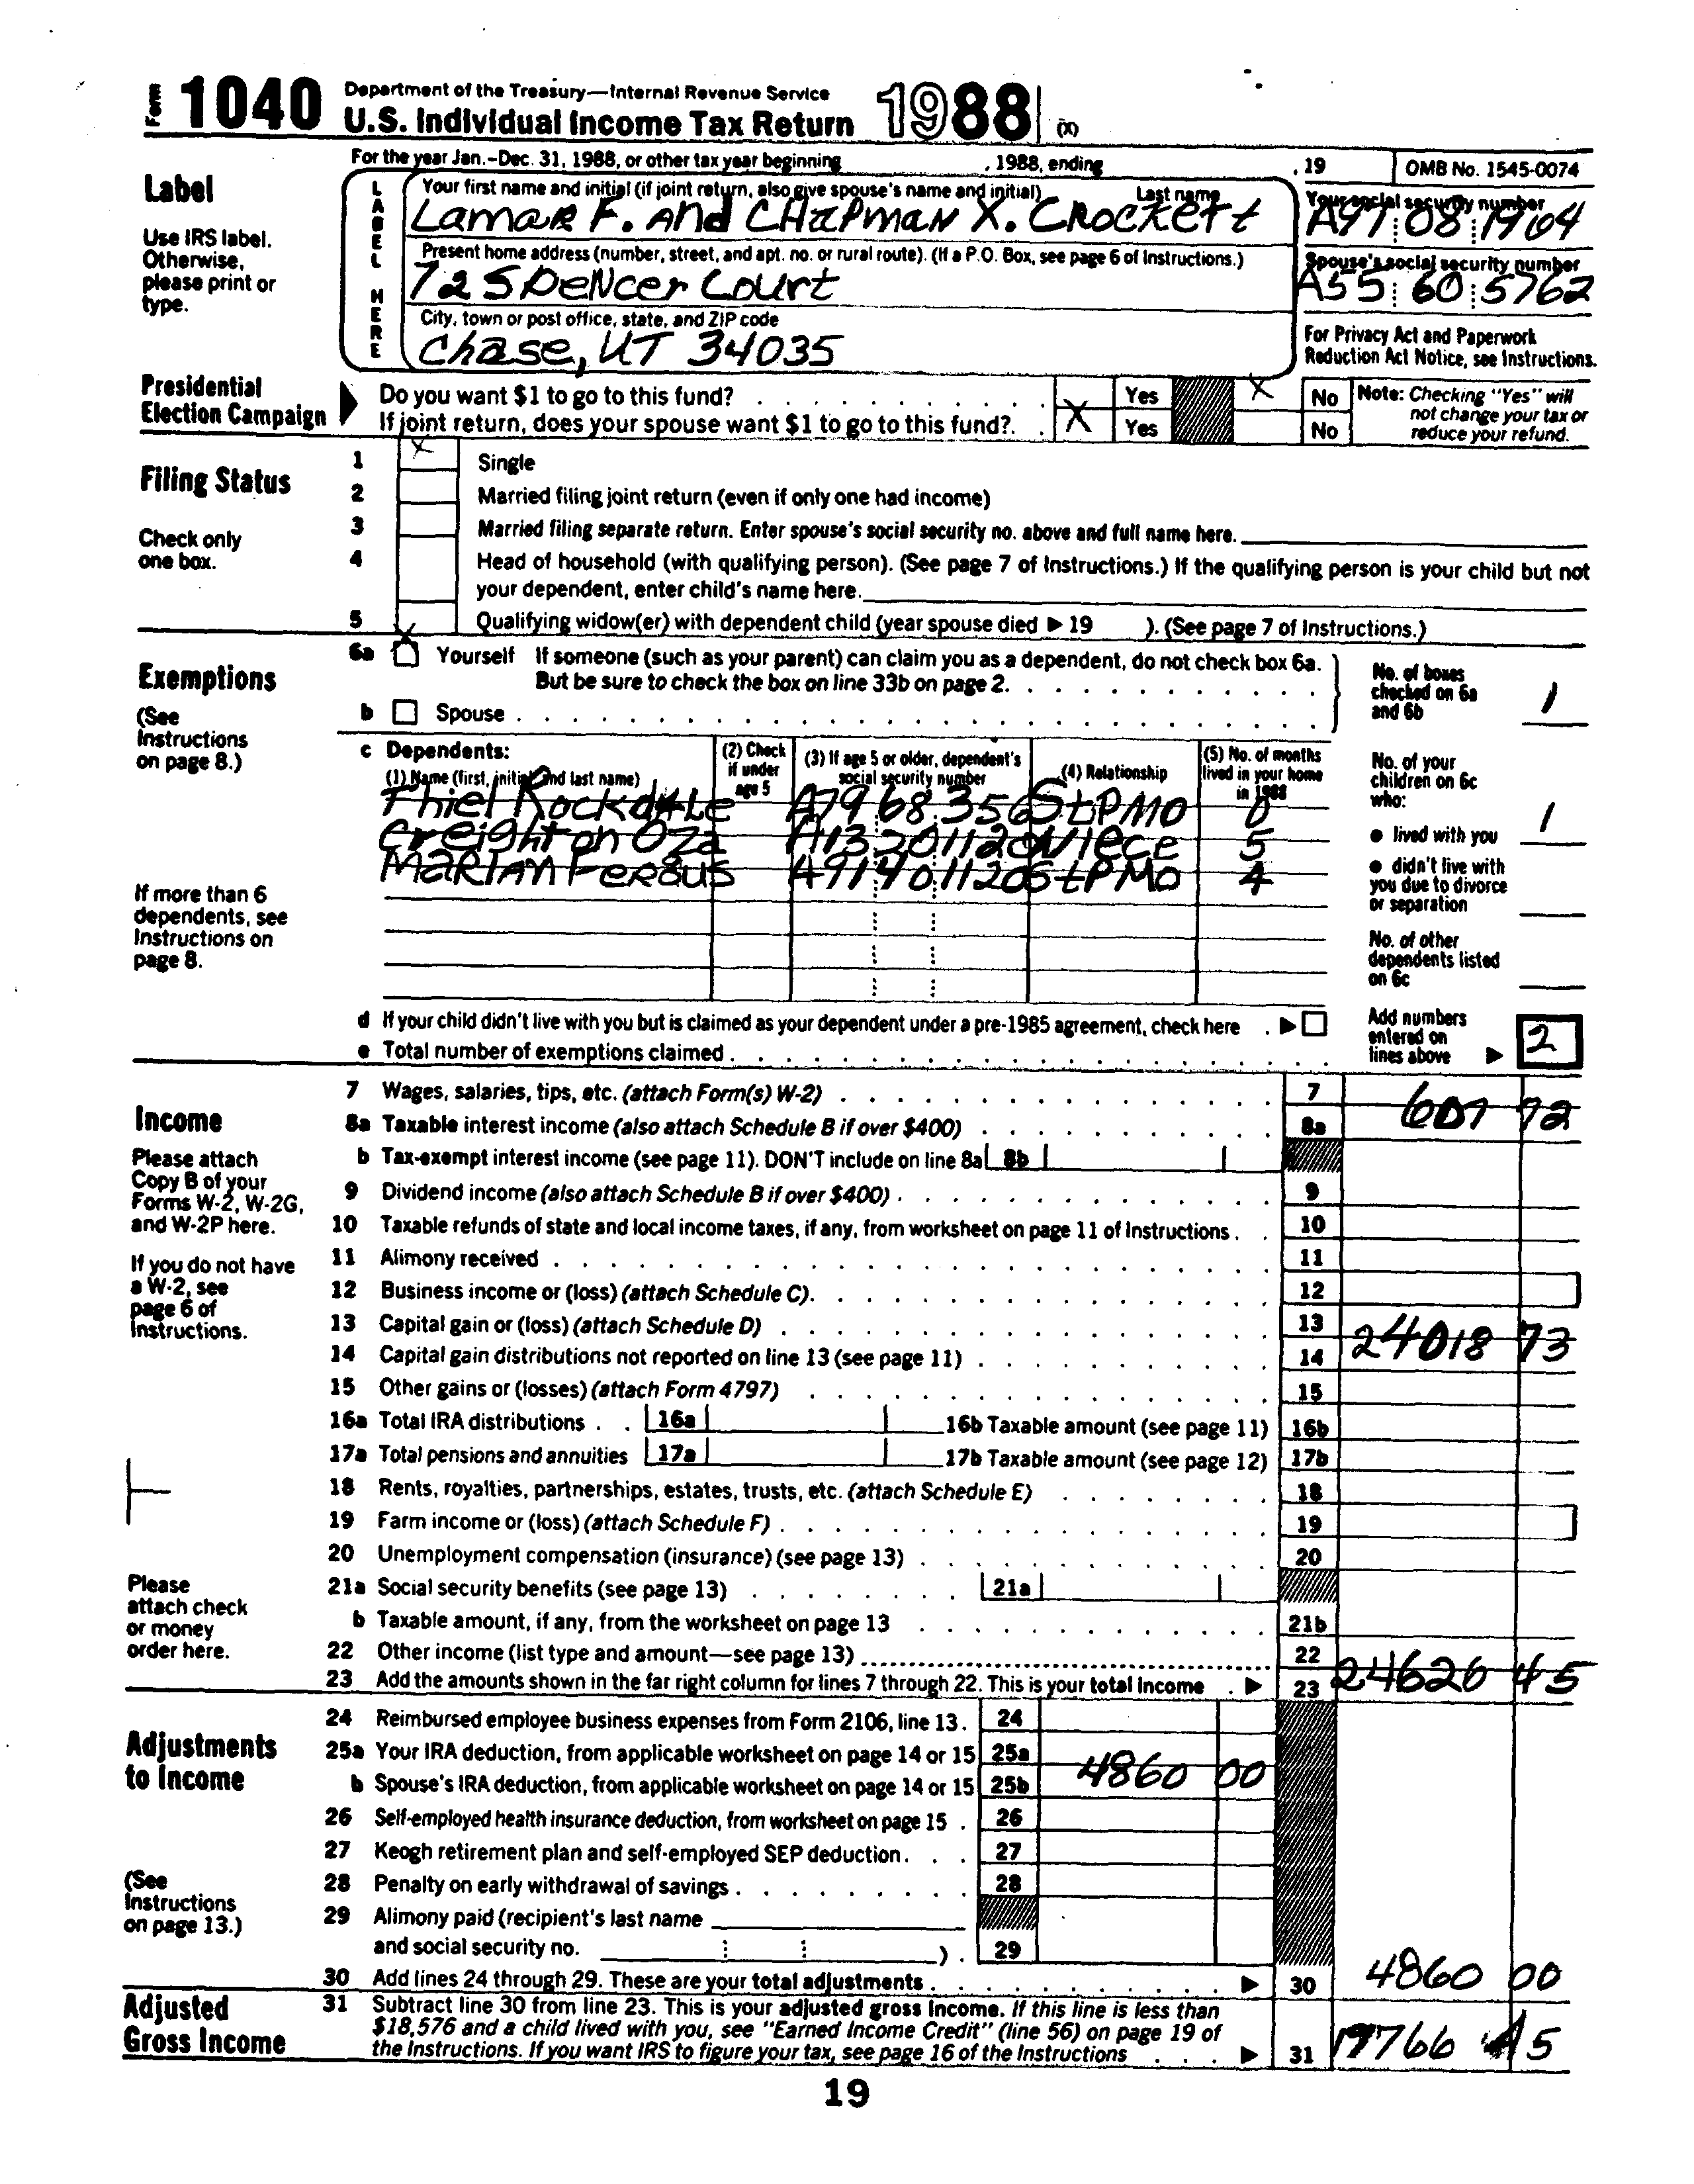 Form 1040 Department of the Treasury—Internal Revenue Service
U.S. Individual Income Tax Return 1988 (X)
For the year Jan.-Dec. 31, 1988, or other tax year beginning , 1988, ending , 19 OMB No. 1545-0074
Label
Use IRS label. Otherwise, please print or type.
LABEL HERE
Your first name and initial (if joint return, also give spouse's name and initial) Last name
Lamar F. And CHAPMAN X. CROCKETT
Your social security number
A91 08 1964
Present home address (number, street, and apt. no. or rural route). (If a P.O. Box, see page 6 of Instructions.)
72 Spencer Court
Spouse's social security number
A55 60 5762
City, town or post office, state, and ZIP code
Chase, UT 34035
For Privacy Act and Paperwork Reduction Act Notice, see Instructions.
Presidential Election Campaign
Do you want $1 to go to this fund? Yes X No
If joint return, does your spouse want $1 to go to this fund? X Yes No
Note: Checking "Yes" will not change your tax or reduce your refund.
Filing Status
Check only one box.
1 X Single
2 Married filing joint return (even if only one had income)
3 Married filing separate return. Enter spouse's social security no. above and full name here.
4 Head of household (with qualifying person). (See page 7 of Instructions.) If the qualifying person is your child but not
your dependent, enter child's name here.
5 Qualifying widow(er) with dependent child (year spouse died ▶ 19 ). (See page 7 of Instructions.)
Exemptions
(See Instructions on page 8.)
6a X Yourself If someone (such as your parent) can claim you as a dependent, do not check box 6a.
But be sure to check the box on line 33b on page 2.
b Spouse
No. of boxes checked on 6a and 6b 1
c Dependents:
(1) Name (first, initial, and last name) (2) Check if under age 5 (3) If age 5 or older, dependent's social security number (4) Relationship (5) No. of months lived in your home in 1988
Thiel Rockdale A79 68 356 StPMO 0
Creighton Oza A13 20 1120 Niece 5
MARIAN Fergus A91 40 1120 StPMO 4
No. of your children on 6c who:
● lived with you 1
● didn't live with you due to divorce or separation
No. of other dependents listed on 6c
If more than 6 dependents, see Instructions on page 8.
d If your child didn't live with you but is claimed as your dependent under a pre-1985 agreement, check here ▶
e Total number of exemptions claimed
Add numbers entered on lines above ▶ 2
Income
Please attach Copy B of your Forms W-2, W-2G, and W-2P here.
If you do not have a W-2, see page 6 of Instructions.
Please attach check or money order here.
7 Wages, salaries, tips, etc. (attach Form(s) W-2) 7
8a Taxable interest income (also attach Schedule B if over $400) 8a 601 72
b Tax-exempt interest income (see page 11). DON'T include on line 8a 8b
9 Dividend income (also attach Schedule B if over $400) 9
10 Taxable refunds of state and local income taxes, if any, from worksheet on page 11 of Instructions 10
11 Alimony received 11
12 Business income or (loss) (attach Schedule C) 12
13 Capital gain or (loss) (attach Schedule D) 13 24018 73
14 Capital gain distributions not reported on line 13 (see page 11) 14
15 Other gains or (losses) (attach Form 4797) 15
16a Total IRA distributions 16a 16b Taxable amount (see page 11) 16b
17a Total pensions and annuities 17a 17b Taxable amount (see page 12) 17b
18 Rents, royalties, partnerships, estates, trusts, etc. (attach Schedule E) 18
19 Farm income or (loss) (attach Schedule F) 19
20 Unemployment compensation (insurance) (see page 13) 20
21a Social security benefits (see page 13) 21a
b Taxable amount, if any, from the worksheet on page 13 21b
22 Other income (list type and amount—see page 13) 22
23 Add the amounts shown in the far right column for lines 7 through 22. This is your total income ▶ 23 24620 45
Adjustments to Income
(See Instructions on page 13.)
24 Reimbursed employee business expenses from Form 2106, line 13. 24
25a Your IRA deduction, from applicable worksheet on page 14 or 15 25a
b Spouse's IRA deduction, from applicable worksheet on page 14 or 15 25b 4860 00
26 Self-employed health insurance deduction, from worksheet on page 15 26
27 Keogh retirement plan and self-employed SEP deduction 27
28 Penalty on early withdrawal of savings 28
29 Alimony paid (recipient's last name
and social security no. ) 29
30 Add lines 24 through 29. These are your total adjustments ▶ 30 4860 00
Adjusted Gross Income
31 Subtract line 30 from line 23. This is your adjusted gross income. If this line is less than
$18,576 and a child lived with you, see "Earned Income Credit" (line 56) on page 19 of
the Instructions. If you want IRS to figure your tax, see page 16 of the Instructions ▶ 31 19766 45
19